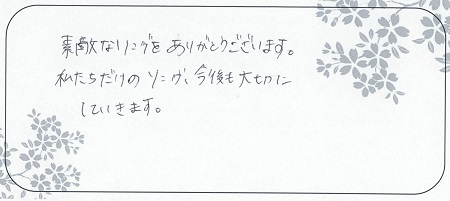 素敵なリングをありがとうございます。
私たちだけのリング、今後も大切に
していきます。